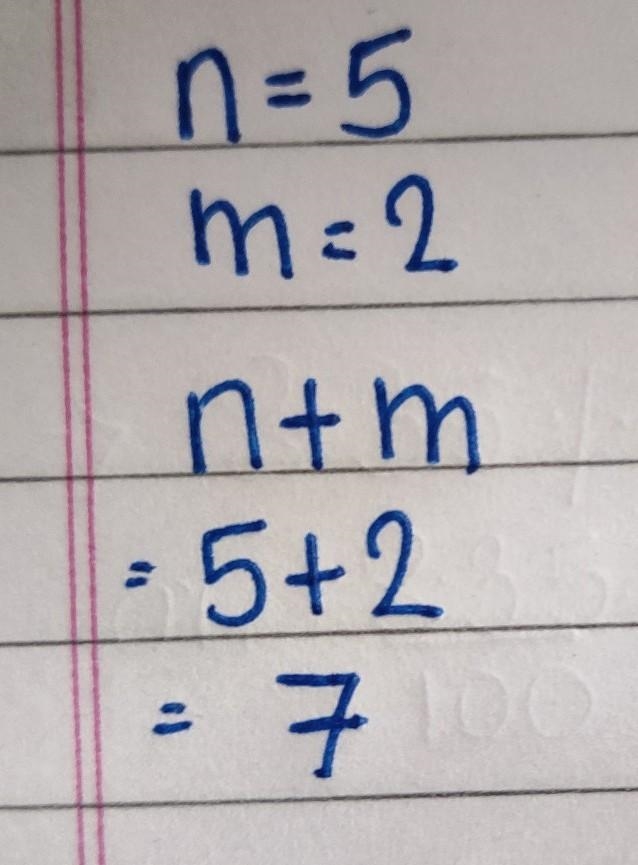 n = 5
m = 2
n + m
= 5 + 2
= 7